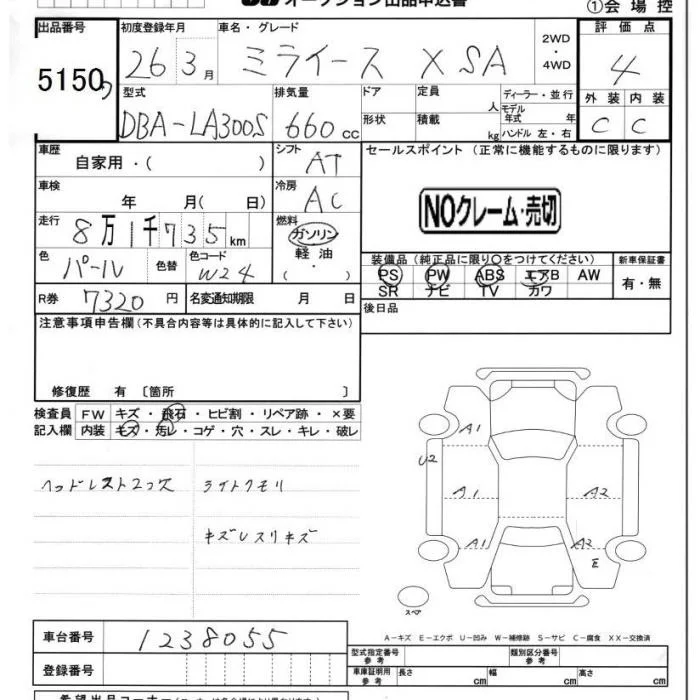 オークション出品申込書
①会場控
出品番号 初度登録年月 車名・グレード 2WD・4WD 評価点
5150 26 3月 ミライース X SA 4
型式 排気量 ドア 定員 人 ディーラー・並行 外装 内装
モデル年式 年
DBA-LA300S 660cc 形状 積載 kg ハンドル 左・右 C C
車歴 自家用・( ) シフト AT セールスポイント (正常に機能するものに限ります)
車検 年 月( 日) 冷房 AC
NOクレーム・売切
走行 8万1千735km 燃料 ガソリン
軽油
( ・ )
色 パール 色替 色コード W24 装備品(純正品に限り○をつけてください) 新車保証書
PS PW ABS エアB AW 有・無
SR ナビ TV カワ
R券 7320円 名変通知期限 月 日
後日品
注意事項申告欄(不具合内容等は具体的に記入して下さい)
修復歴 有 〔箇所 〕
検査員 FW キズ・飛石・ヒビ割・リペア跡・×要
記入欄 内装 キズ・汚レ・コゲ・穴・スレ・キレ・破レ
A1
U2
ヘッドレスト2コ欠 ライトクモリ
A1 A2
キズレスリキズ
A1 A2
E
スペア
A-キズ E-エクボ U-凹み W-補修跡 S-サビ C-腐食 XX-交換済
車台番号 1238055
型式指定番号 参考 類別区分番号 参考
登録番号
車庫証明用 参考 長さ cm 幅 cm 高さ cm